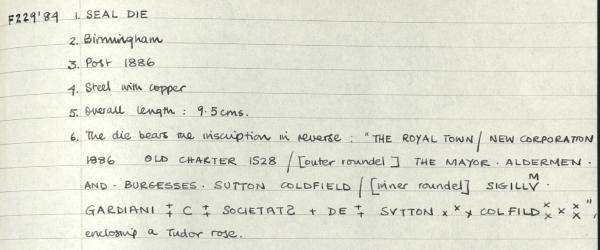 F229'84 1. SEAL DIE
2. Birmingham
3. Post 1886
4. Steel with copper
5. Overall length : 9.5 cms.
6. The die bears the inscription in reverse : "THE ROYAL TOWN / NEW CORPORATION
1886 OLD CHARTER 1528 / [outer roundel] THE MAYOR · ALDERMEN ·
AND · BURGESSES · SUTTON COLDFIELD / [inner roundel] SIGILLVM ·
GARDIANI ‡ C ‡ SOCIETATS + DE ‡ SVTTON x x x COLFILD x x x x",
enclosing a Tudor rose.